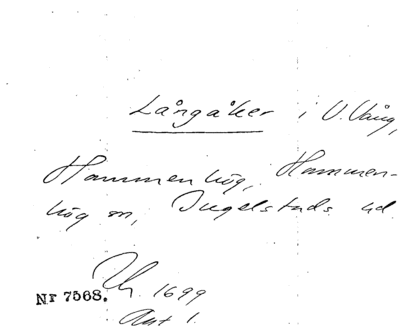 Långåker i V. Vång,
Hammenhög, Hammen-
hög sn, Ingelstads hd
Nr 7568. 1699
Akt 1.